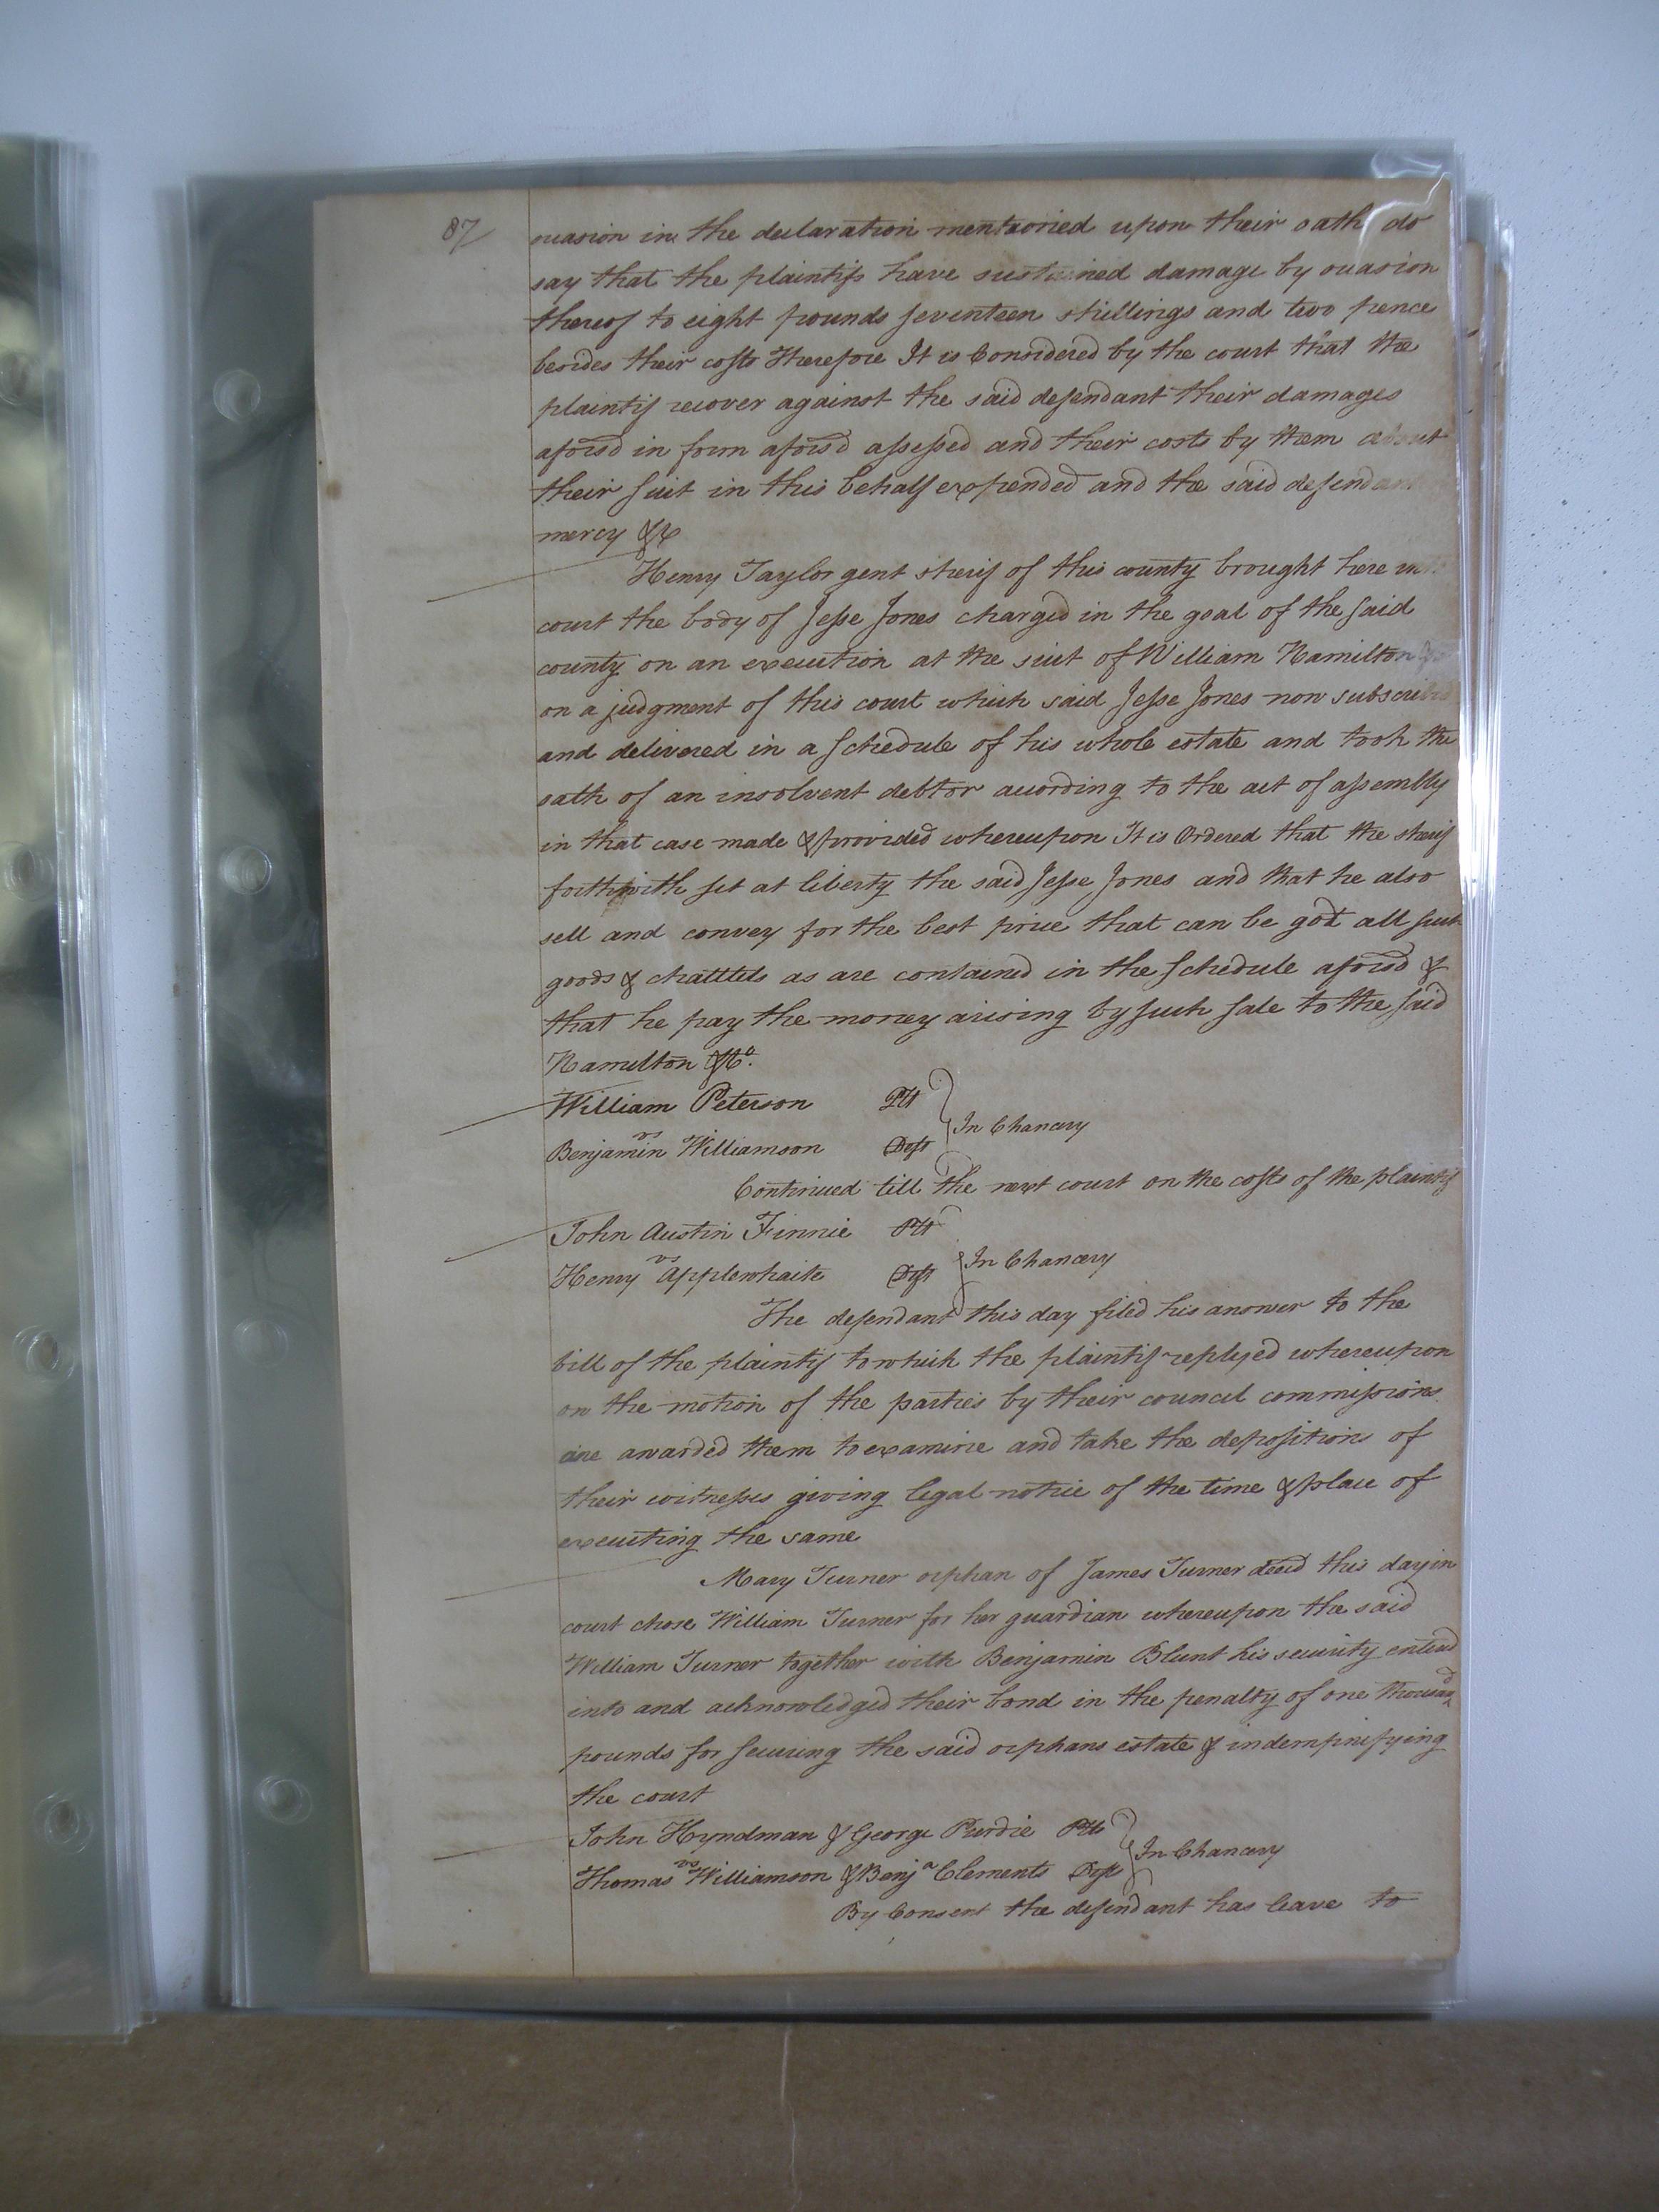 87/
occasion in the declaration mentioned upon their oath do
say that the plaintifs have sustained damage by occasion
thereof to eight pounds seventeen shillings and two pence
besides their costs Therefore It is Considered by the court that the
plaintif recover against the said defendant their damages
afores'd in form afores'd assessed and their costs by them about
their suit in this behalf expended and the said defendant
mercy &c
Henry Taylor gent sherif of this county brought here into
court the body of Jesse Jones charged in the goal of the said
county on an execution at the suit of William Hamilton
on a judgment of this court which said Jesse Jones now subscribed
and delivered in a schedule of his whole estate and took the
oath of an insolvent debtor according to the act of assembly
in that case made & provided whereupon It is Ordered that the sherif
forthwith set at liberty the said Jesse Jones and that he also
sell and convey for the best price that can be got all such
goods & chattels as are contained in the schedule afores'd &
that he pay the money arising by such sale to the said
Hamilton & Co.
William Peterson Plt
vs In Chancery
Benjamin Williamson Deft
Continued till the next court on the costs of the plaintif
John Austin Finnie Plt
vs In Chancery
Henry Applewhaite Deft
The defendant this day filed his answer to the
bill of the plaintif to which the plaintif replyed whereupon
on the motion of the parties by their council commissions
are awarded them to examine and take the depositions of
their witnesses giving legal notice of the time & place of
executing the same
Mary Turner orphan of James Turner deced this day in
court chose William Turner for her guardian whereupon the said
William Turner together with Benjamin Blunt his security entered
into and acknowledged their bond in the penalty of one thousand
pounds for securing the said orphans estate & indempnifying
the court
John Hyndman & George Purdie Plts
vs In Chancery
Thomas Williamson & Benja Clements Deft
By Consent the defendant has leave to